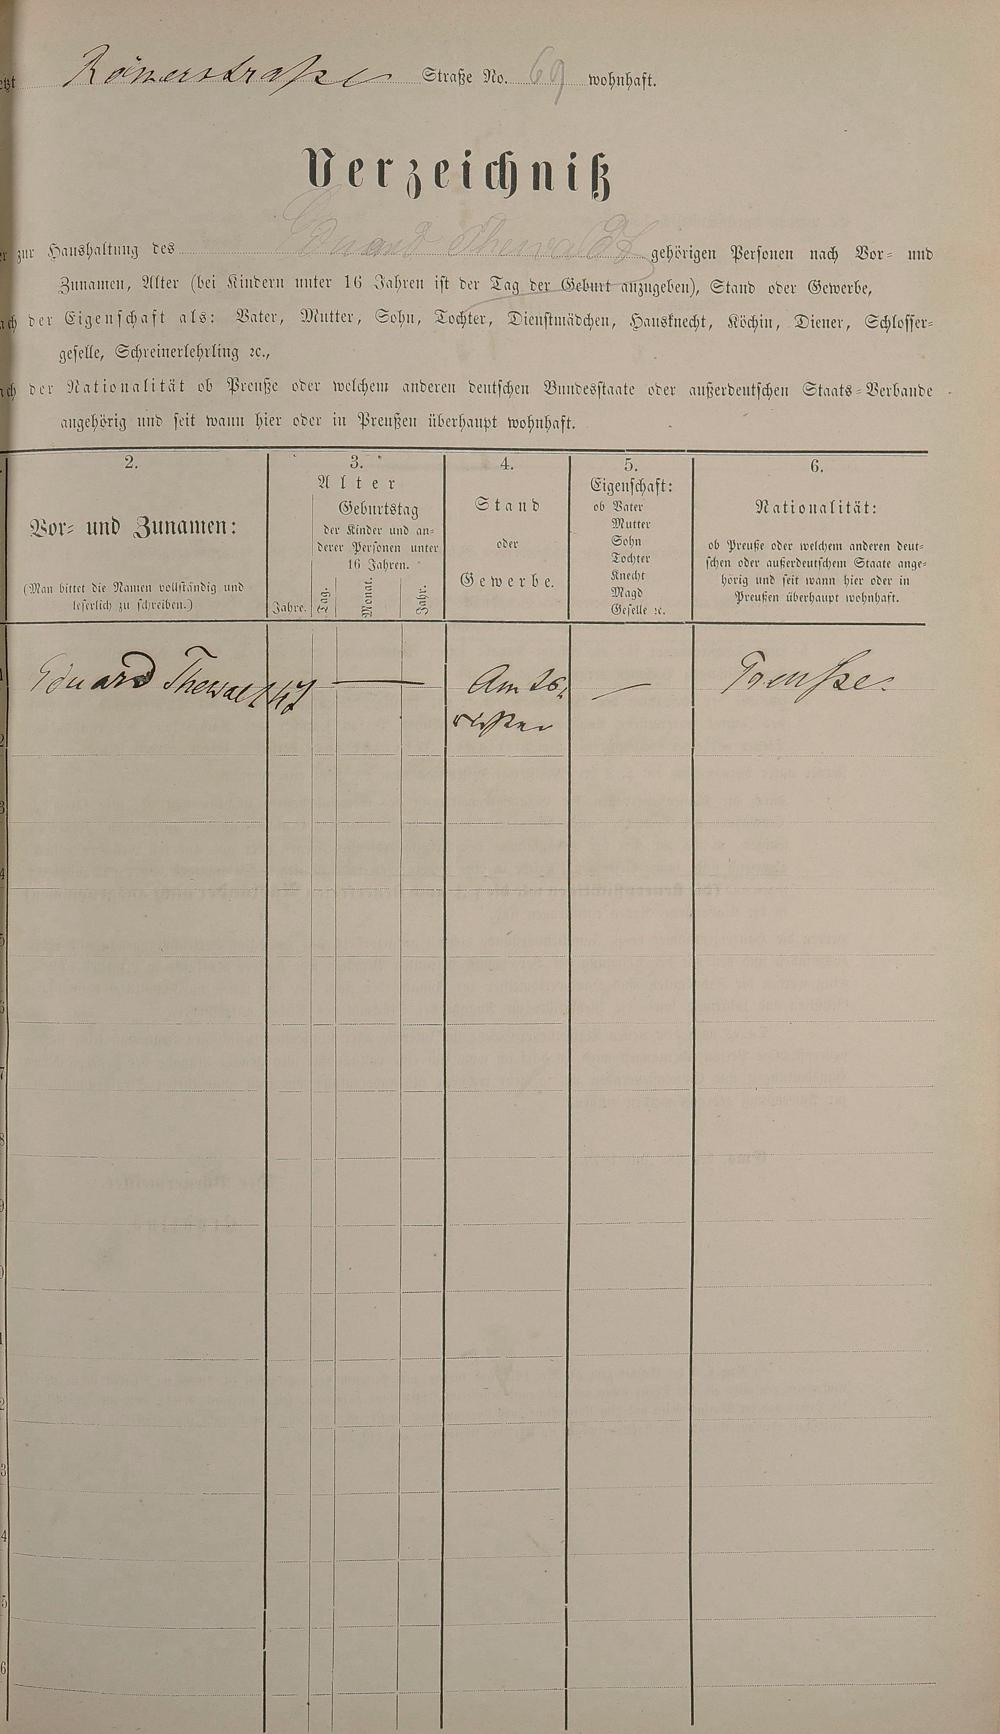 Römerstraße Straße No. 69 wohnhaft.
Verzeichniß
zur Haushaltung des Eduard Thewaldt gehörigen Personen nach Vor- und
Zunamen, Alter (bei Kindern unter 16 Jahren ist der Tag der Geburt anzugeben), Stand oder Gewerbe,
der Eigenschaft als: Vater, Mutter, Sohn, Tochter, Dienstmädchen, Hausknecht, Köchin, Diener, Schlosser-
geselle, Schreinerlehrling ꝛc.,
der Nationalität ob Preuße oder welchem anderen deutschen Bundesstaate oder außerdeutschen Staats-Verbande
angehörig und seit wann hier oder in Preußen überhaupt wohnhaft.
2.
Vor- und Zunamen:
(Man bittet die Namen vollständig und
leserlich zu schreiben.)
3.
Alter
Geburtstag
der Kinder und an-
derer Personen unter
16 Jahren.
Jahre.
Tag.
Monat.
Jahr.
4.
Stand
oder
Gewerbe.
5.
Eigenschaft:
ob Vater
Mutter
Sohn
Tochter
Knecht
Magd
Geselle ꝛc.
6.
Nationalität:
ob Preuße oder welchem anderen deut-
schen oder außerdeutschem Staate ange-
hörig und seit wann hier oder in
Preußen überhaupt wohnhaft.
Eduard Thewalt 47 — — Preuße.
2
3
4
5
6
7
8
9
0
1
2
3
4
5
6